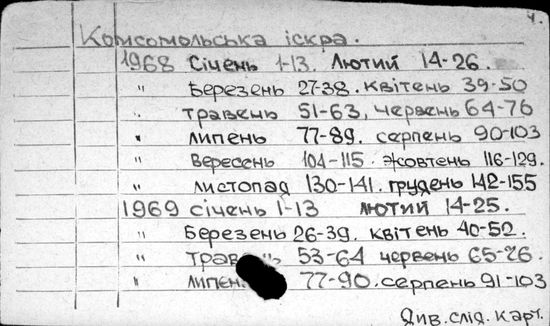 ч.
Комсомольська іскра.
1968 Січень 1-13. Лютий 14-26.
" Березень 27-38. квітень 39-50
" травень 51-63, червень 64-76
" липень 77-89. серпень 90-103
" Вересень 104-115. жовтень 116-129.
" листопад 130-141. грудень 142-155
1969 січень 1-13 лютий 14-25.
" Березень 26-39. квітень 40-52.
" 53-64 червень 65-76.
" 77-90. серпень 91-103
Див. слід. карт.